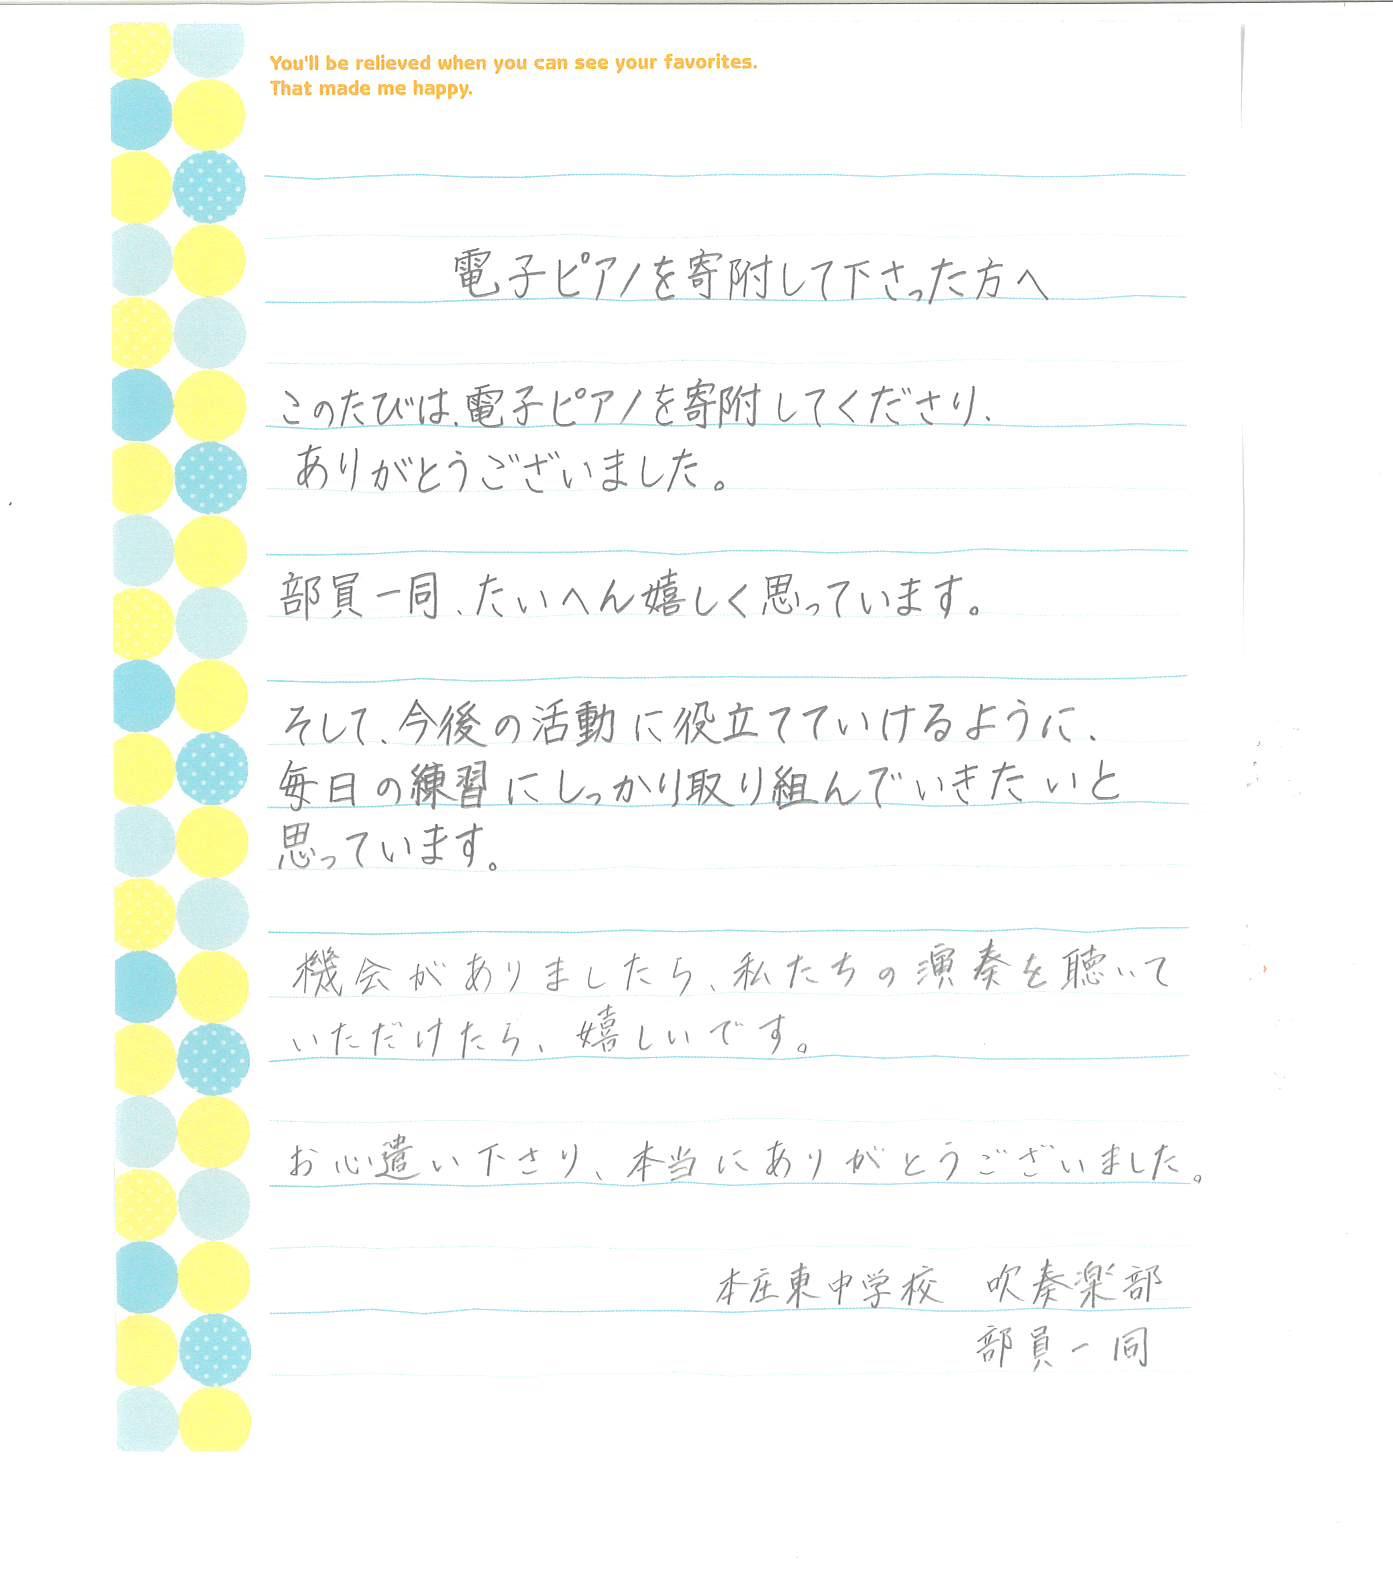 You'll be relieved when you can see your favorites.
That made me happy.
電子ピアノを寄附して下さった方へ
このたびは、電子ピアノを寄附してくださり、
ありがとうございました。
部員一同、たいへん嬉しく思っています。
そして、今後の活動に役立てていけるように、
毎日の練習にしっかり取り組んでいきたいと
思っています。
機会がありましたら、私たちの演奏を聴いて
いただけたら、嬉しいです。
お心遣い下さり、本当にありがとうございました。
本庄東中学校 吹奏楽部
部員一同